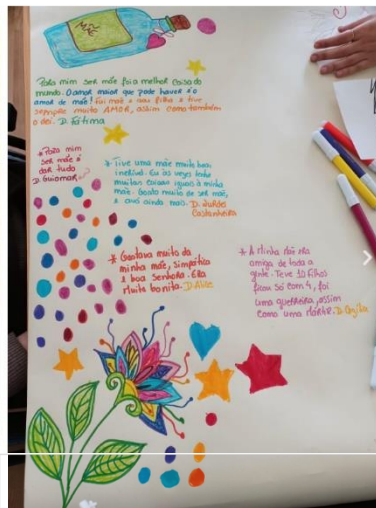 Para mim ser mãe foi a melhor coisa do
mundo. O amor maior que pode haver é o
amor de mãe! Fui mãe e sou filha e tive
sempre muito AMOR, assim como também
o dei. D. Fátima
* Para mim
ser mãe é
dar tudo
D. Guiomar
* Tive uma mãe muito boa,
incrível. Eu às vezes tenho
muitas coisas iguais à minha
mãe. Gosto muito de ser mãe,
e avó ainda mais. D. Lurdes
Castanheira
* Gostava muito da
minha mãe, simpática
e boa senhora. Era
muito bonita. D. Alice
* A minha mãe era
amiga de toda a
gente. Teve 10 filhos
ficou só com 4, foi
uma guerreira, assim
como uma mártir. D.